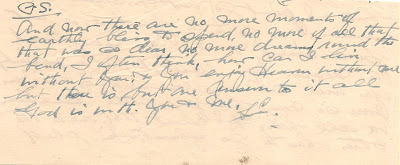 P.S.
And now there are no more moments of
earthly bliss to spend, no more of all that
that was so dear, no more dreams round the
bend, I often think, how can I live
without you & you enjoy Heaven without me
but there is but one answer to it all
God is with you & me.